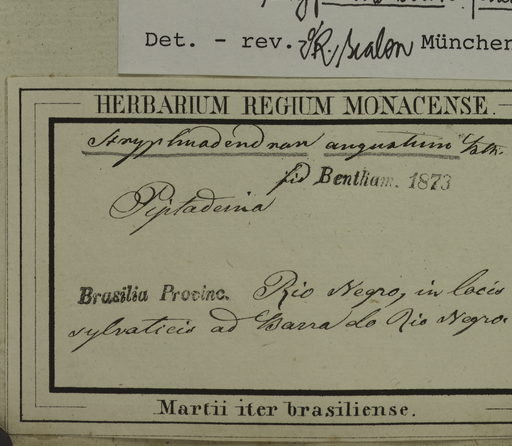 Det. - rev. München
HERBARIUM REGIUM MONACENSE.
Stryphnodendron angustum Bth.
fid Bentham. 1873
Piptadenia
Brasilia Provinc. Rio Negro, in locis
sylvaticis ad Barra do Rio Negro.
Martii iter brasiliense.